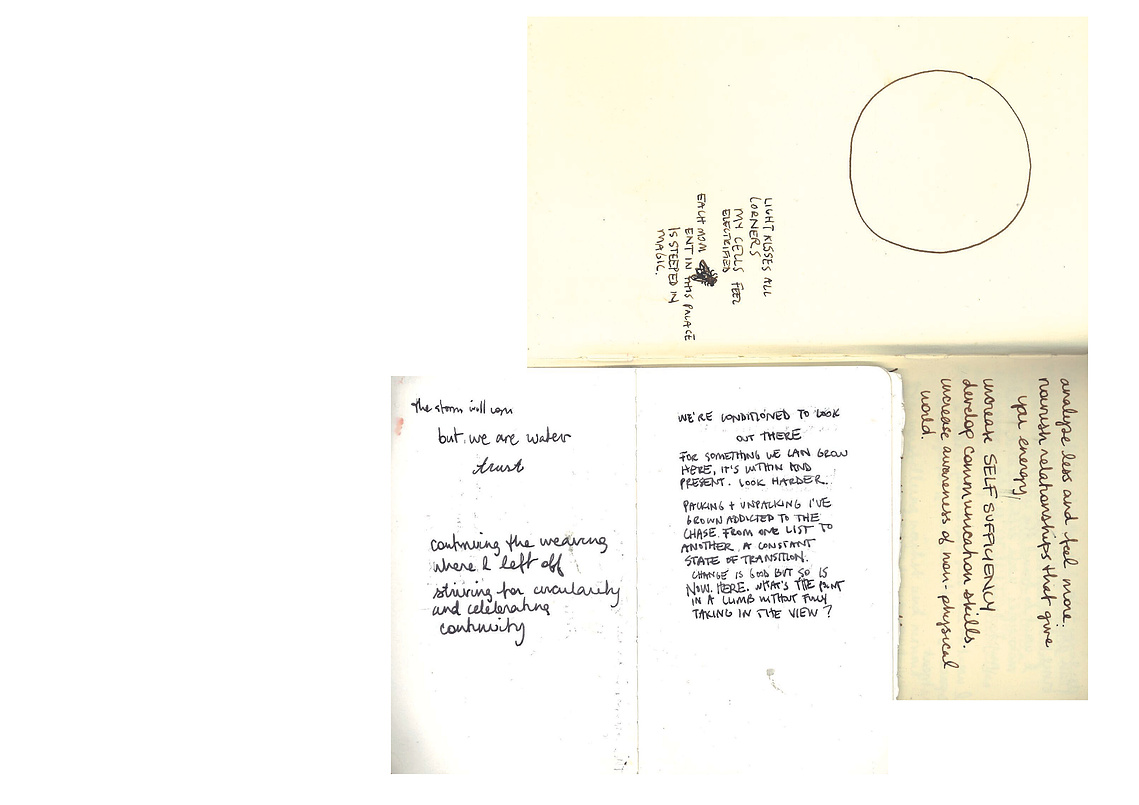 LIGHT KISSES ALL
CORNERS
MY CELLS FEEL
ELECTRIFIED
EACH MOM
ENT IN THIS PALACE
IS STEEPED IN
MAGIC.
analyse less and feel more.
nourish relationships that give
you energy,
increase SELF SUFFICIENCY
develop communication skills.
increase awareness of non-physical
world.
the storm will
but, we are water
trust
continuing the weaving
where I left off
striving for circularity
and celebrating
continuity
WE'RE CONDITIONED TO LOOK
OUT THERE
FOR SOMETHING WE CAN GROW
HERE, IT'S WITHIN AND
PRESENT. LOOK HARDER.
PACKING + UNPACKING I'VE
GROWN ADDICTED TO THE
CHASE. FROM ONE LIST TO
ANOTHER, A CONSTANT
STATE OF TRANSITION.
CHANGE IS GOOD BUT SO IS
NOW. HERE. WHAT'S THE POINT
IN A CLIMB WITHOUT FULLY
TAKING IN THE VIEW?